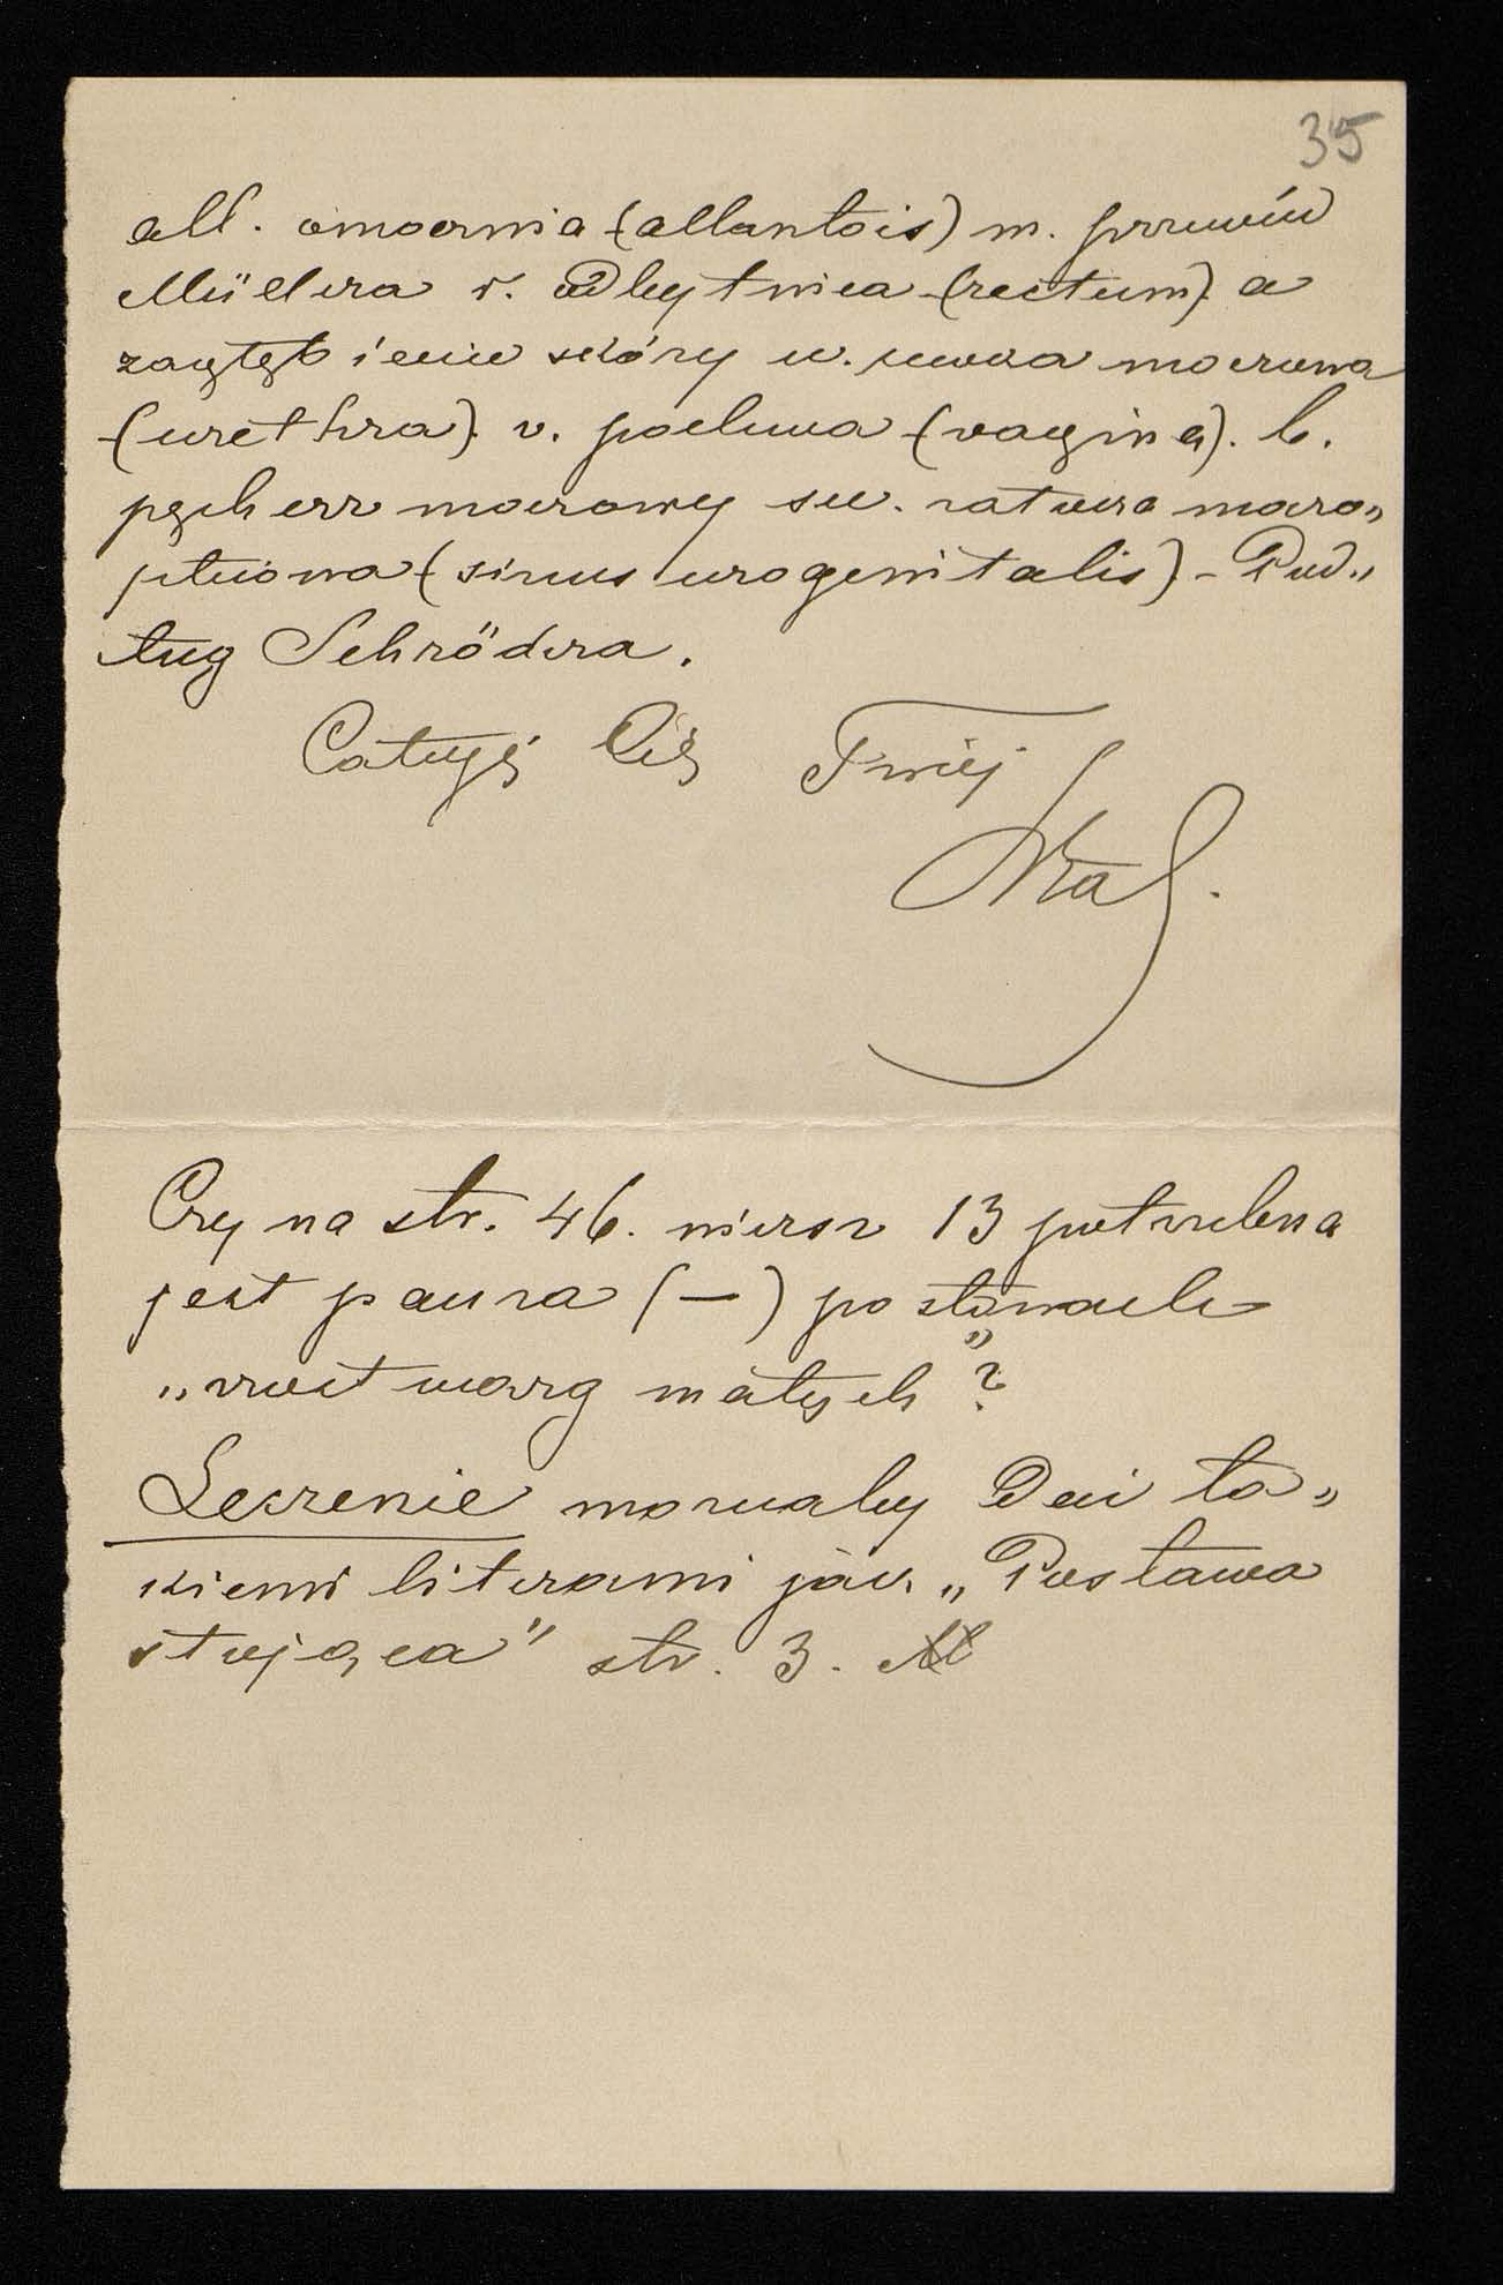 35
all. omocznia (allantois) m. przewód
Müllera r. odbytnica (rectum) a
zagłębienie skóry u. cewka moczowa
(urethra). v. pochwa (vagina). b.
pęcherz moczowy su. zatoka moczo„
płciowa (sinus urogenitalis) - Pod„
ług Schrödera.
Całuję Cię Twój
Czy na str. 46. wiersz 13 potrzebna
jest pauza (—) po słowach
„zrost warg małych"?
Leczenie možnaby Dać ta„
kiemi literami jak „Postawa
stojąca" str. 3.